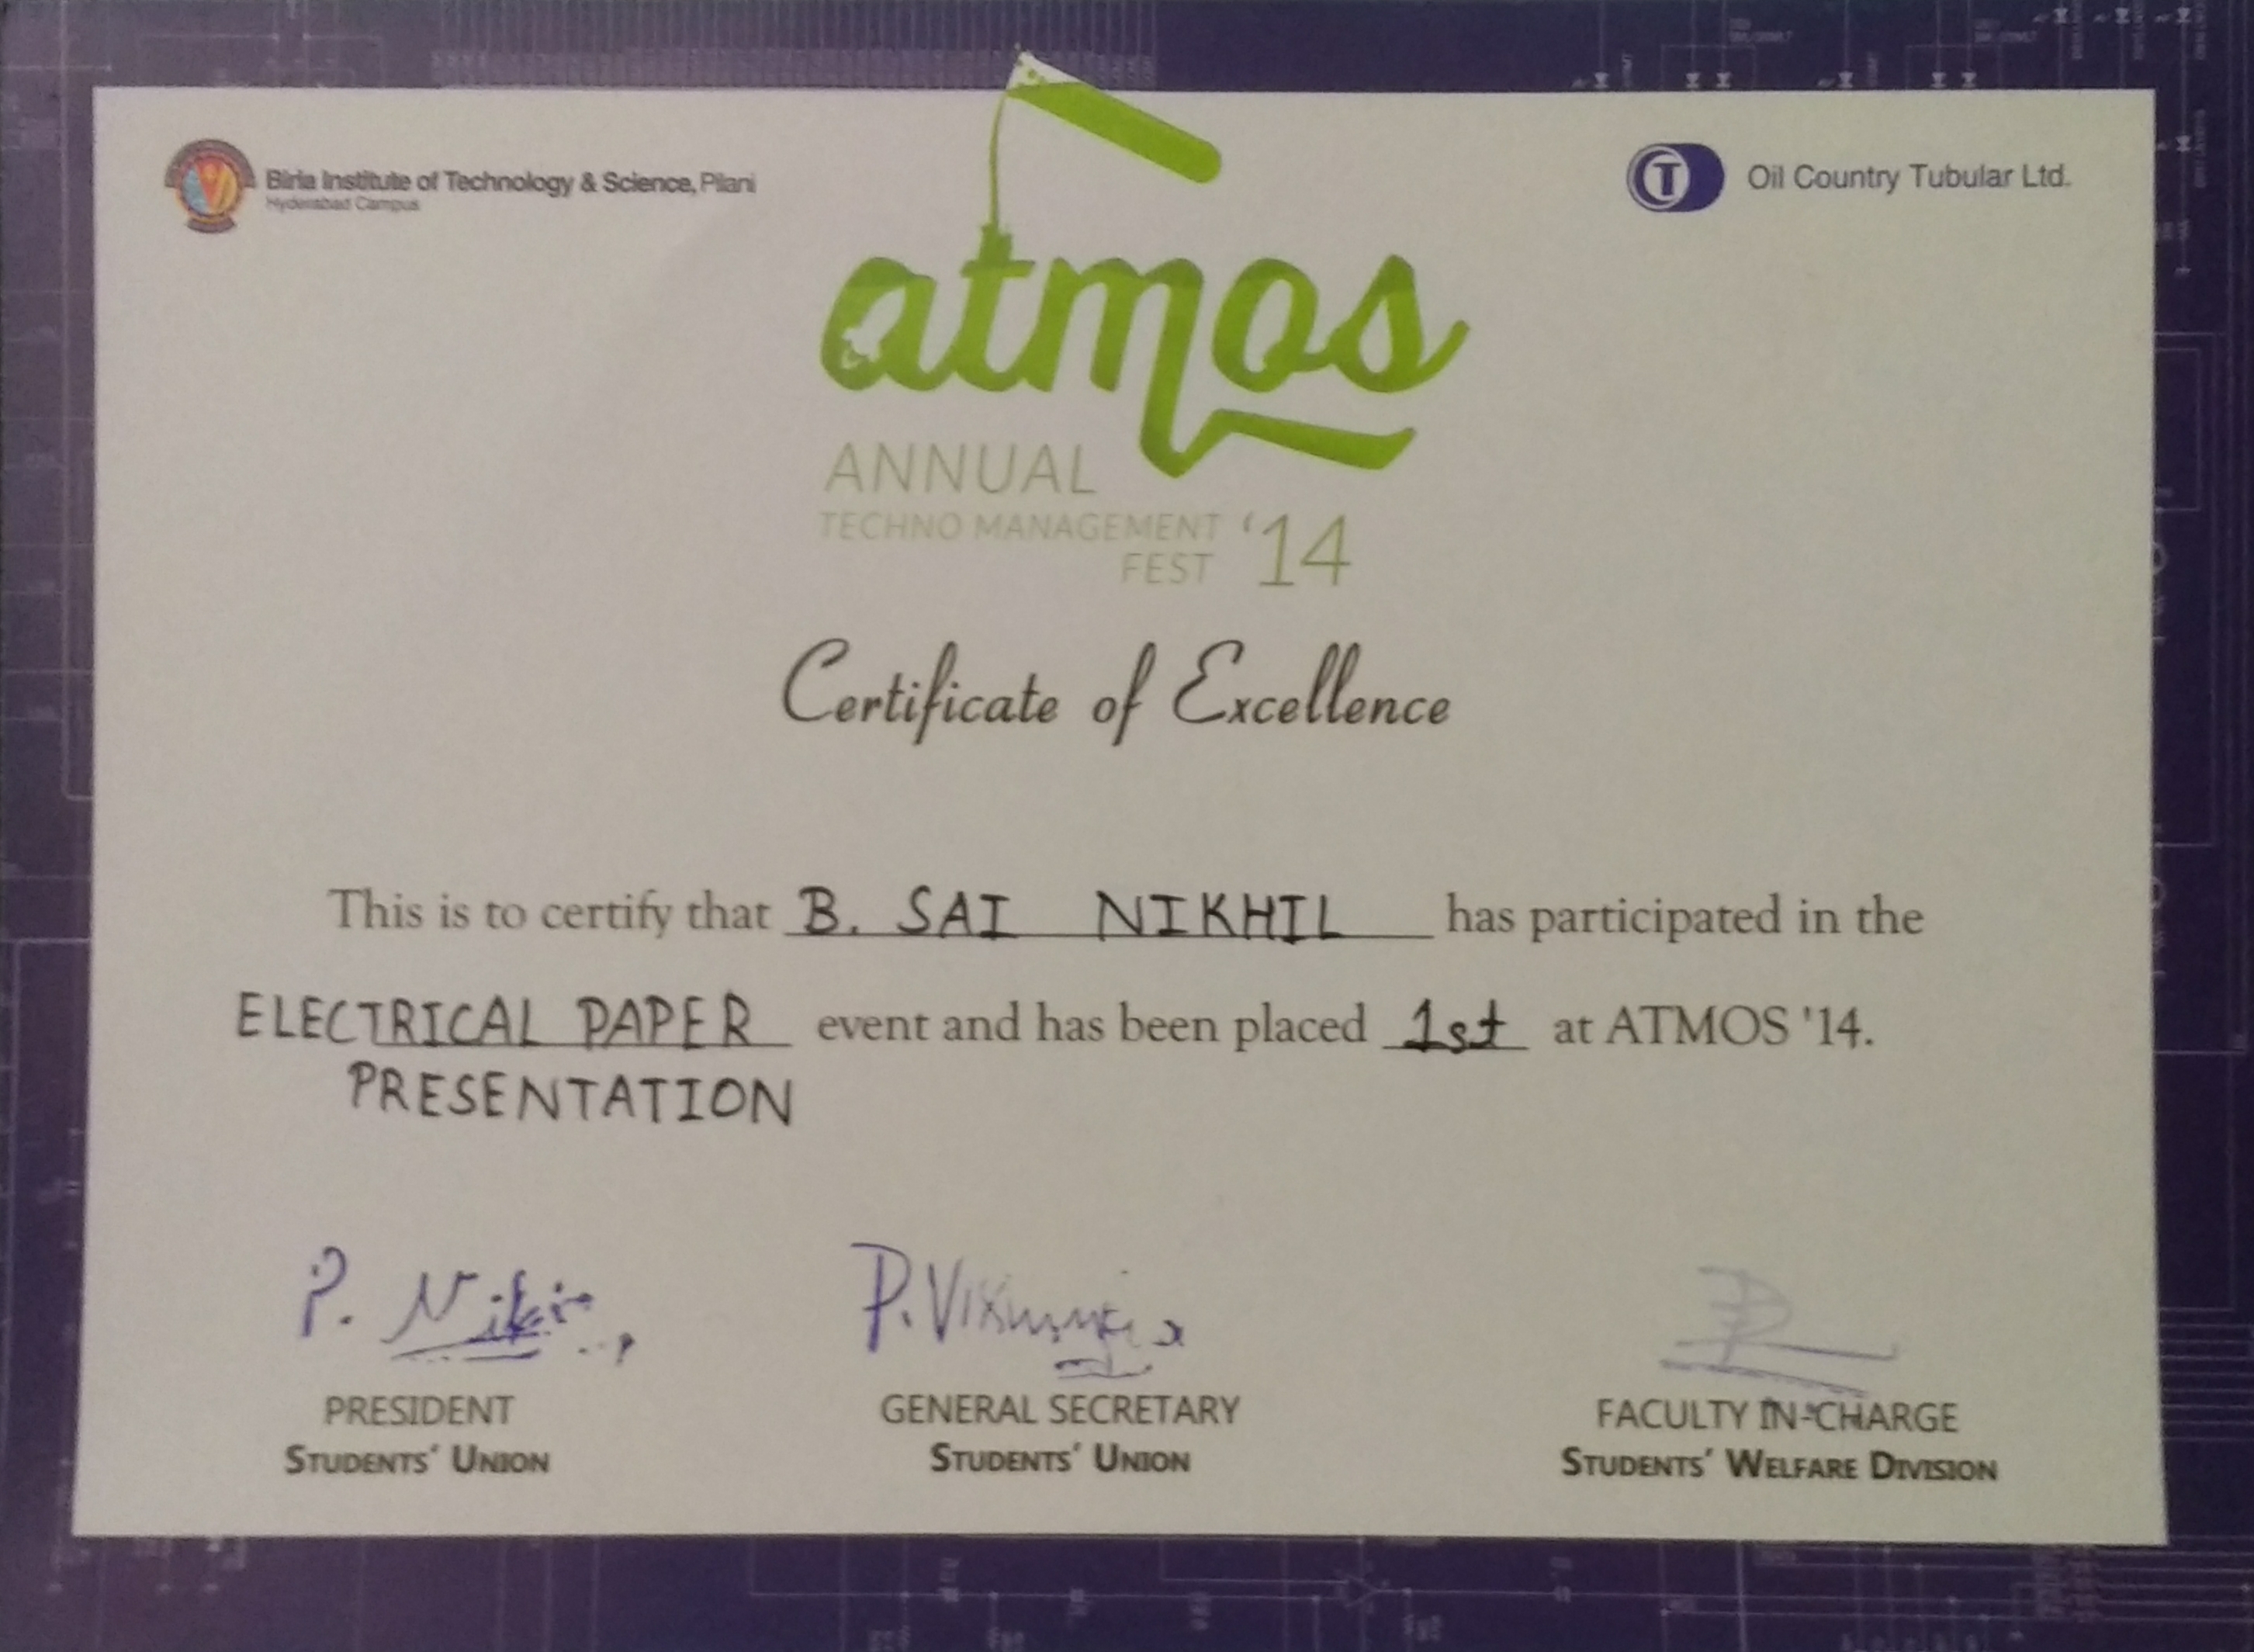 Birla Institute of Technology & Science, Pilani
Hyderabad Campus
Oil Country Tubular Ltd.
atmos
ANNUAL
TECHNO MANAGEMENT
FEST '14
Certificate of Excellence
This is to certify that B. SAI NIKHIL has participated in the
ELECTRICAL PAPER event and has been placed 1st at ATMOS '14.
PRESENTATION
PRESIDENT
STUDENTS' UNION
GENERAL SECRETARY
STUDENTS' UNION
FACULTY IN-CHARGE
STUDENTS' WELFARE DIVISION